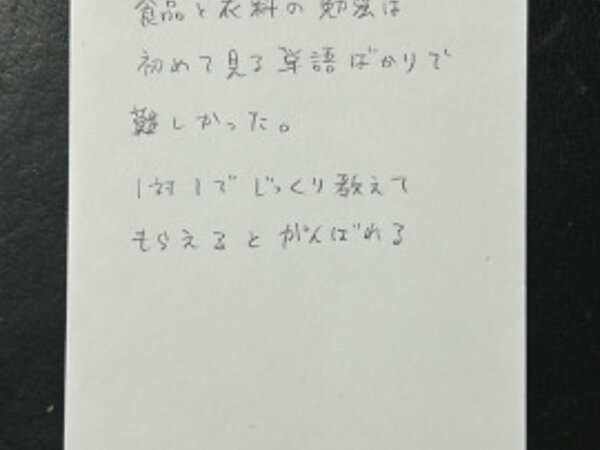 食品と衣料の勉強は
初めて見る単語ばかりで
難しかった。
1対1でじっくり教えて
もらえるとがんばれる